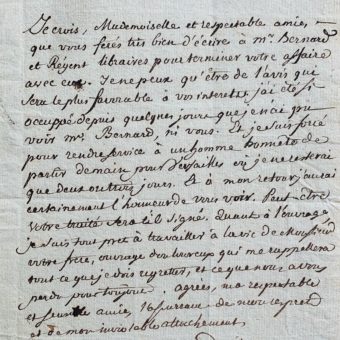 Je crois, Mademoiselle et respectable amie,
que vous ferés très bien d'écrire à mr. Bernard
et Régent libraires pour terminer votre affaire
avec eux. Je ne peux qu'être de l'avis qui
sera le plus favorable à vos interets j'ai été si
occuppé depuis quelques jours que je n'ai pu
voir mr. Bernard, ni vous. Et je suis forcé
pour rendre service à un homme honnete de
partir demain pour Versailles où je ne resterai
que deux ou trois jours. Et à mon retour j'aurai
certainement l'honneur de vous voir. Peut être
votre traité sera t'il signé. Quant à l'ouvrage
je suis tout pret à travailler à la vie de Monsieur
votre frère, ouvrage douloureux qui me rappellera
tout ce que je dois regretter, et ce que nous avons
perdu pour toujours. agréés, ma respectable
et amie, de mon respect
et de mon inviolable attachement.